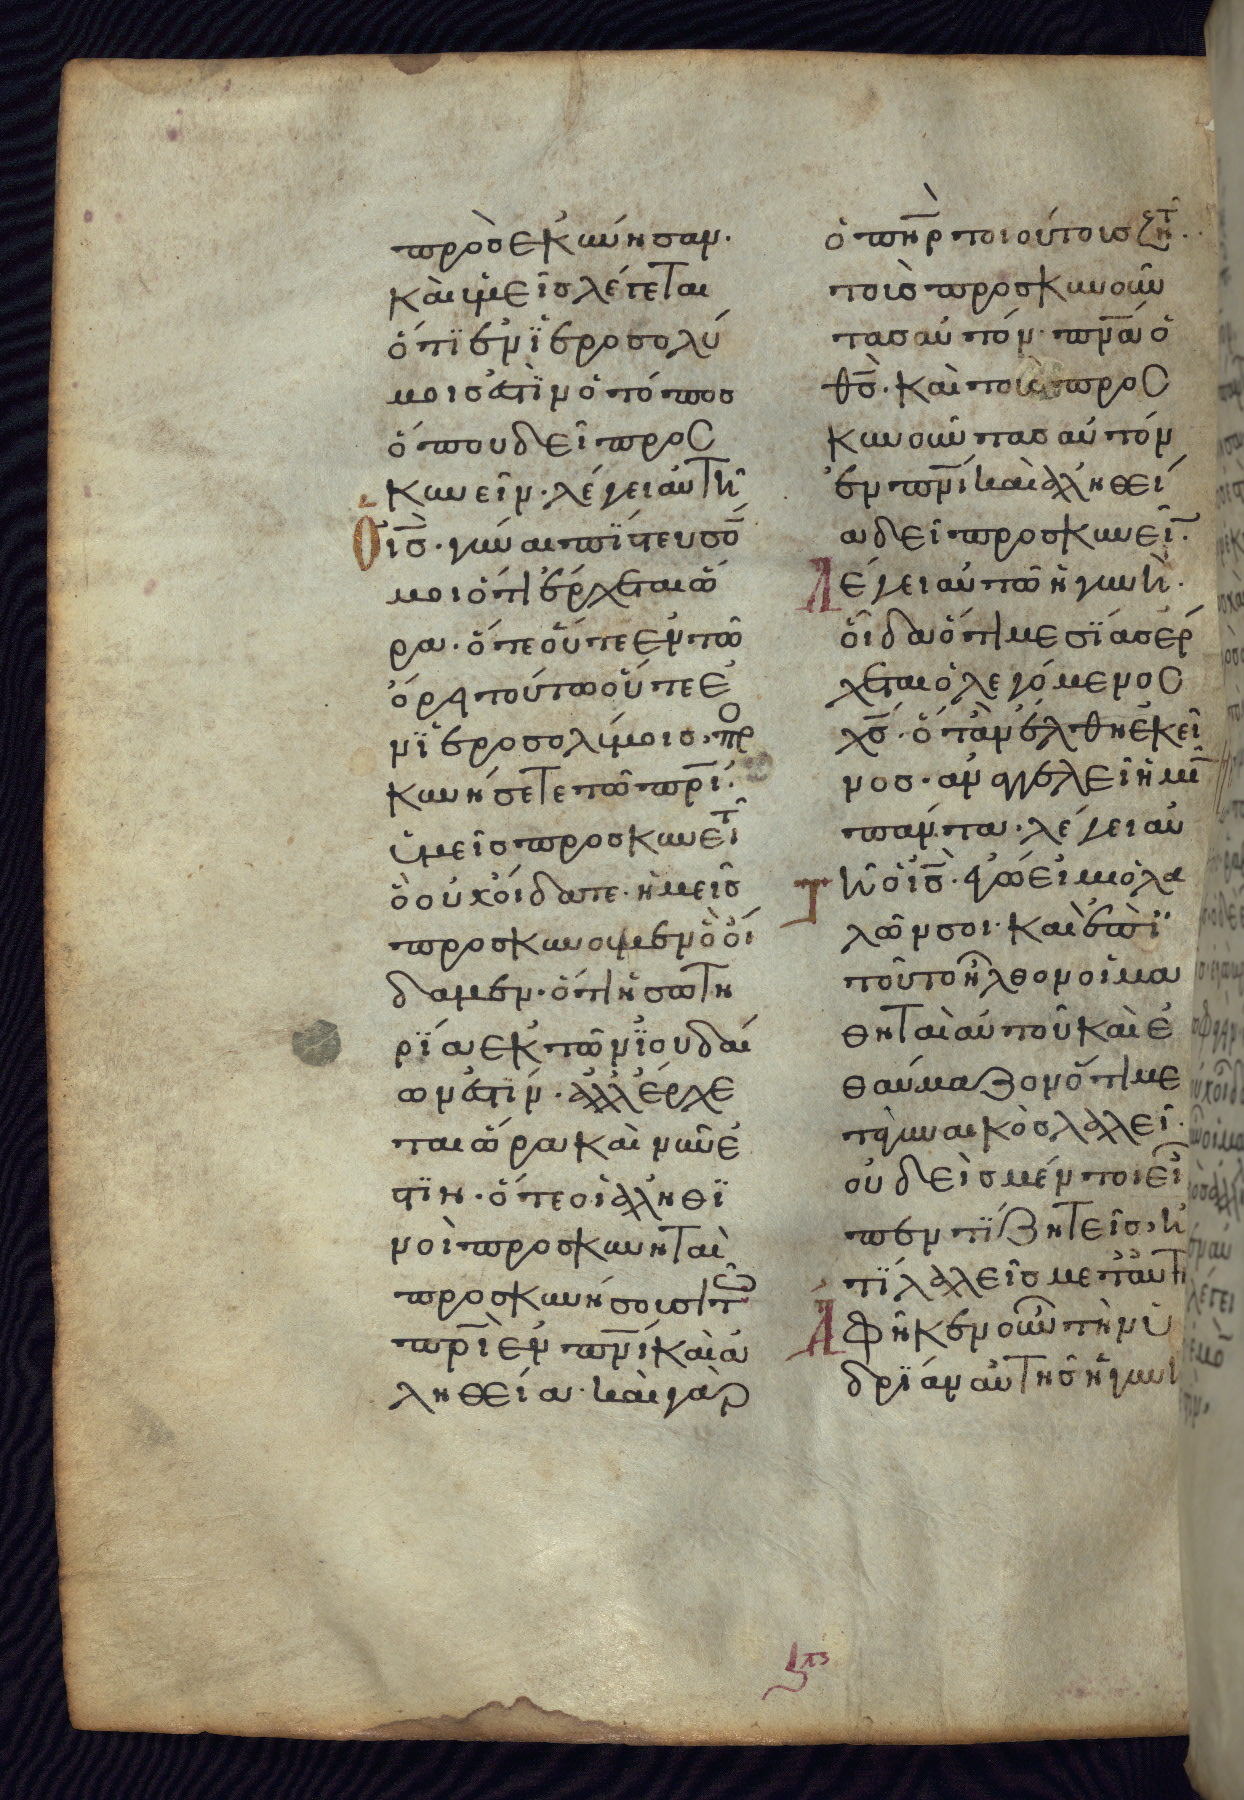 προσεκύνησαν·
καὶ ὑμεῖς λέγεται
ὅτϊ ἐν ϊεροσολύ
μοις ἐστὶν ὁ τόπος
ὅπου δεῖ προσ
κυνεῖν· λέγει αὐτῆ
Ὁ ις̅· γύναι πίστευσο̅
μοι ὅτι ἔρχεται ὥ
ρα· ὅτε οὔτε ἐν τῶ
ὄρη τούτω οὔτε ἐ
ν ϊεροσολύμοις προ
κυνήσετε τῶ πρ̅ι·
ὑμεῖς προσκυνεῖτ
ὃ οὐκ οἴδατε· ἡμεῖς
προσκυνοῦμεν ὃ οἴ
δαμεν· ὅτι ἡ σωτη
ρία ἐκ τῶν ϊουδαί
ων ἐστίν· ἀλλ ἔρχε
ται ὥρα καὶ νῦν ἐ
στϊν· ὅτε οἱ ἀληθϊ
νοὶ προσκυνηταὶ
προσκυνήσουσι τῶ
πρ̅ι ἐν πν̅ι καὶ ἀ
ληθεία· καὶ γὰρ
ὁ πη̅ρ τοιούτοις ζητ̑··
τοὺσ προσκυνοῦν
τας αὐτόν· πν̅α ὁ
θς̅· καὶ τοὺσ προσ
κυνοῦντας αὐτόν
ἐν πν̅ι καὶ ἀληθεί
α δεῖ προσκυνεῖ̅·
Λέγει αὐτῶ ἡ γυνή·
οἶδα ὅτι μεσίας ἔρ
χεται ὁ λεγόμενος
χς̅· ὅταν ἔλθη ἐκεῖ
νος· ἀναγγελεῖ ἡμῖ̅
πάντα· λέγει αὐ
Τῆ ὁ ις̅· ἐγώ εἰμι ὁ λα
λῶν σοι· καὶ ἐπὶ
τοῦτο ἦλθον οἱ μα
θηταὶ αὐτοῦ καὶ ἐ
θαύμαζον ὅτι με
τὰ γυναικὸς λαλεῖ·
οὐδεὶς μέν τοι εἶ
πεν τί ζητεῖς, ἢ
τί λαλεῖς μετ αὐτῆ
Ἀφῆκεν οὖν τὴν ὑ
δρίαν αὐτῆς ἡ γυνὴ